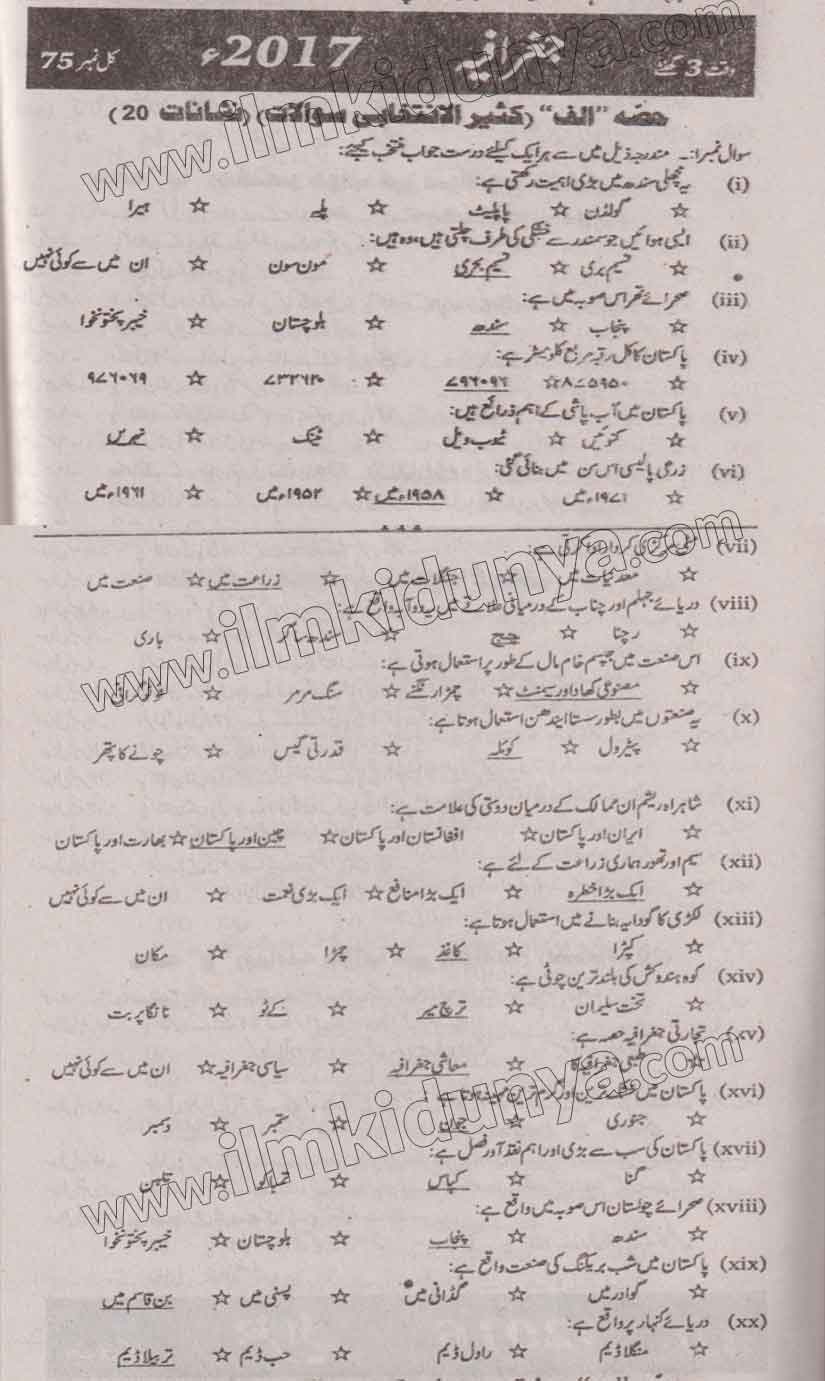 وقت 3 گھنٹے جغرافیہ 2017ء کل نمبر 75
حصہ "الف" (کثیر الانتخابی سوالات) (نشانات 20)
سوال نمبر۱:۔ مندرجہ ذیل میں سے ہر ایک کیلئے درست جواب منتخب کیجئے:
(i) یہ مچھلی سندھ میں بڑی اہمیت رکھتی ہے:
☆ گولڈن ☆ پاپلیٹ ☆ پلے ☆ ہیرا
(ii) ایسی ہوائیں جو سمندر سے خشکی کی طرف چلتی ہیں، وہ ہیں:
☆ نسیم بری ☆ نسیم بحری ☆ مون سون ☆ ان میں سے کوئی نہیں
(iii) صحرائے تھر اس صوبہ میں ہے:
☆ پنجاب ☆ سندھ ☆ بلوچستان ☆ خیبر پختونخوا
(iv) پاکستان کا کل رقبہ مربع کلومیٹر ہے:
☆ ۸۷۵۹۵۰ ☆ ۷۹۶۰۹۶ ☆ ۷۳۳۶۲۰ ☆ ۹۷۶۰۶۹
(v) پاکستان میں آب پاشی کے اہم ذرائع ہیں:
☆ کنوئیں ☆ ٹیوب ویل ☆ ٹینک ☆ نہریں
(vi) زرعی پالیسی اس سن میں بنائی گئی:
☆ ۱۹۷۱ء میں ☆ ۱۹۵۸ء میں ☆ ۱۹۵۲ء میں ☆ ۱۹۶۱ء میں
(vii) کردار ادا کرتی ہے:
☆ معدنیات میں ☆ جنگلات میں ☆ زراعت میں ☆ صنعت میں
(viii) دریائے جہلم اور چناب کے درمیانی علاقے میں یہ دوآب واقع ہے:
☆ رچنا ☆ چج ☆ سندھ ساگر ☆ باری
(ix) اس صنعت میں جپسم خام مال کے طور پر استعمال ہوتی ہے:
☆ مصنوعی کھاد اور سیمنٹ ☆ چمڑا رنگنے ☆ سنگ مرمر ☆
(x) یہ صنعتوں میں بطور سستا ایندھن استعمال ہوتا ہے:
☆ پیٹرول ☆ کوئلہ ☆ قدرتی گیس ☆ چونے کا پتھر
(xi) شاہراہ ریشم ان ممالک کے درمیان دوستی کی علامت ہے:
☆ ایران اور پاکستان ☆ افغانستان اور پاکستان ☆ چین اور پاکستان ☆ بھارت اور پاکستان
(xii) سیم اور تھور ہماری زراعت کے لئے ہے:
☆ ایک بڑا خطرہ ☆ ایک بڑا منافع ☆ ایک بڑی نعمت ☆ ان میں سے کوئی نہیں
(xiii) لکڑی کا گودا یہ بنانے میں استعمال ہوتا ہے:
☆ کپڑا ☆ کاغذ ☆ چمڑا ☆ مکان
(xiv) کوہ ہندوکش کی بلند ترین چوٹی ہے:
☆ تخت سلیمان ☆ ترچ میر ☆ کے ٹو ☆ نانگا پربت
(xv) تجارتی جغرافیہ حصہ ہے:
☆ طبعی جغرافیہ کا ☆ معاشی جغرافیہ ☆ سیاسی جغرافیہ ☆ ان میں سے کوئی نہیں
(xvi) پاکستان میں خشک ترین اور گرم ترین مہینہ ہوتا ہے:
☆ جنوری ☆ جون ☆ ستمبر ☆ دسمبر
(xvii) پاکستان کی سب سے بڑی اور اہم نقد آور فصل ہے:
☆ گنا ☆ کپاس ☆ تمباکو ☆
(xviii) صحرائے چولستان اس صوبہ میں واقع ہے:
☆ سندھ ☆ پنجاب ☆ بلوچستان ☆ خیبر پختونخوا
(xix) پاکستان میں شپ بریکنگ کی صنعت واقع ہے:
☆ گوادر میں ☆ گڈانی میں ☆ پسنی میں ☆ بن قاسم میں
(xx) دریائے کنہار پر واقع ہے:
☆ منگلا ڈیم ☆ راول ڈیم ☆ حب ڈیم ☆ تربیلا ڈیم
www.ilmkidunya.com
www.ilmkidunya.com
www.ilmkidunya.com